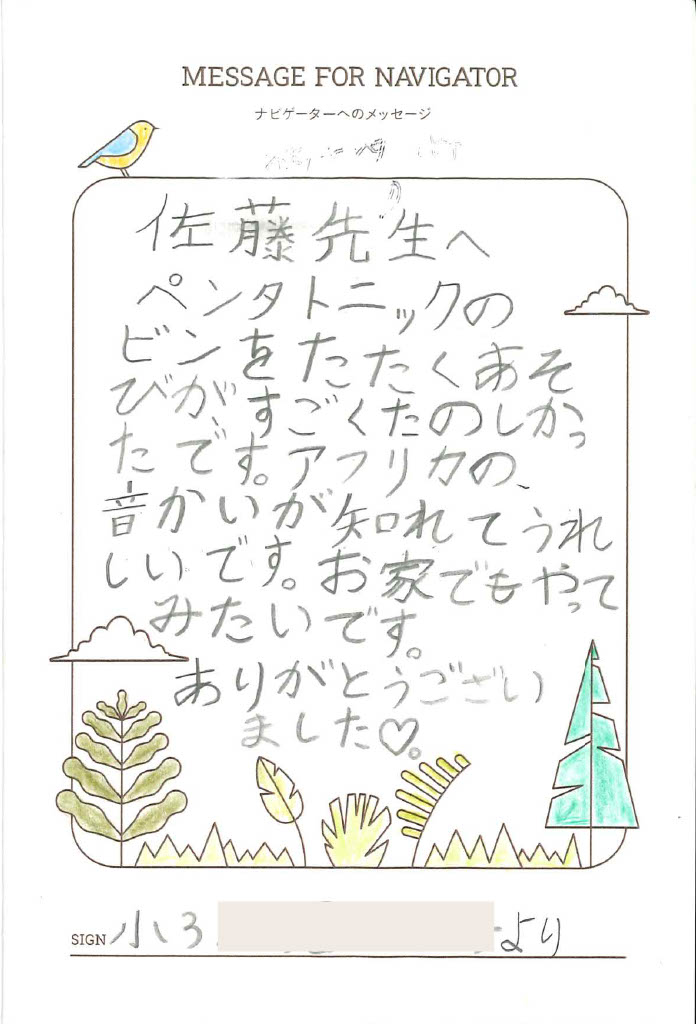 MESSAGE FOR NAVIGATOR
ナビゲーターへのメッセージ
佐藤先生へ
ペンタトニックの
ビンをたたくあそ
びが、すごくたのしかっ
たです。アフリカの、
音かいが知れてうれ
しいです。お家でもやって
みたいです。
ありがとうござい
ました♡。
SIGN 小3 より